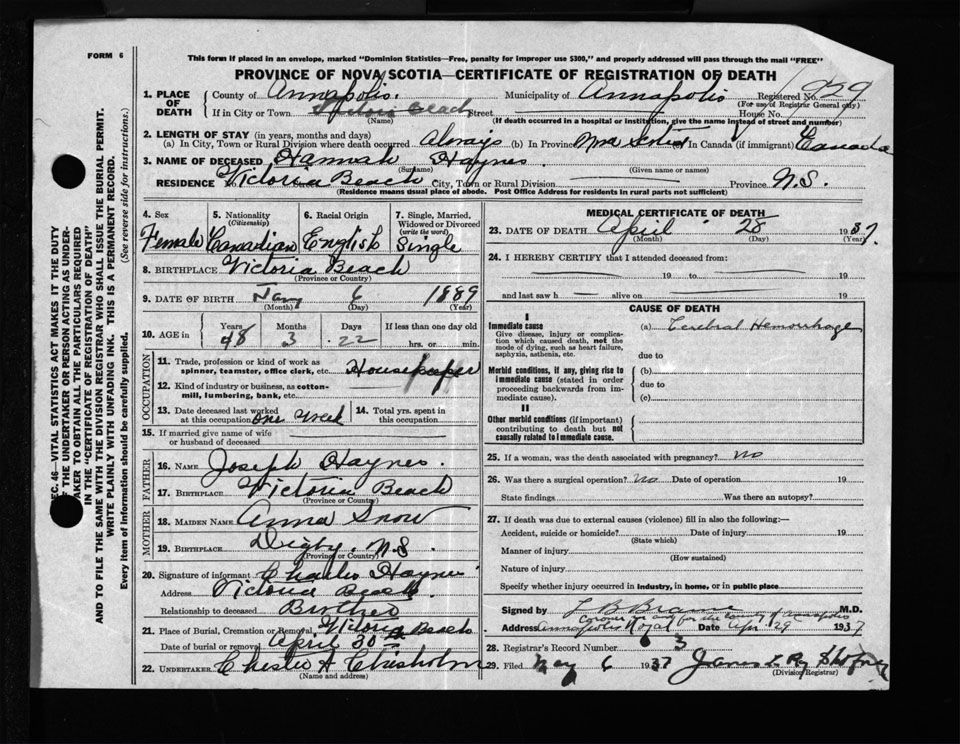 FORM 6
This form if placed in an envelope, marked "Dominion Statistics—Free, penalty for improper use $300," and properly addressed will pass through the mail "FREE"
PROVINCE OF NOVA SCOTIA—CERTIFICATE OF REGISTRATION OF DEATH
1. PLACE OF DEATH County of Annapolis. Municipality of Annapolis Registered No. 929
(For use of Registrar General only)
If in City or Town Victoria Beach Street House No.
(Name) (If death occurred in a hospital or institution, give the name instead of street and number)
2. LENGTH OF STAY (in years, months and days)
(a) In City, Town or Rural Division where death occurred Always (b) In Province Nova Scotia (c) In Canada (if immigrant) Canada
3. NAME OF DECEASED Hannah Haynes.
(Surname) (Given name or names)
RESIDENCE No. Victoria Beach City, Town or Rural Division Province N.S.
(Residence means usual place of abode. Post Office Address for residents in rural parts not sufficient)
4. Sex Female
5. Nationality (Citizenship) Canadian
6. Racial Origin English
7. Single, Married, Widowed or Divorced (write the word) Single
8. BIRTHPLACE Victoria Beach
(Province or Country)
9. DATE OF BIRTH Jany 6 1889
(Month) (Day) (Year)
10. AGE in Years 48 Months 3 Days 22 If less than one day old hrs. or min.
OCCUPATION
11. Trade, profession or kind of work as spinner, teamster, office clerk, etc. Housekeeper
12. Kind of industry or business, as cotton-mill, lumbering, bank, etc.
13. Date deceased last worked at this occupation One Week
14. Total yrs. spent in this occupation
15. If married give name of wife or husband of deceased
FATHER
16. NAME Joseph Haynes.
17. BIRTHPLACE Victoria Beach
(Province or Country)
MOTHER
18. MAIDEN NAME Anna Snow
19. BIRTHPLACE Digby. N.S.
(Province or Country)
20. Signature of informant Charles Haynes
Address Victoria Beach
Relationship to deceased Brother
21. Place of Burial, Cremation or Removal Victoria Beach
Date of burial or removal April 30th
22. UNDERTAKER Chesley A Chisholm
(Name and address)
MEDICAL CERTIFICATE OF DEATH
23. DATE OF DEATH April 28 1937.
(Month) (Day) (Year)
24. I HEREBY CERTIFY that I attended deceased from:
19 to 19
and last saw h alive on 19
CAUSE OF DEATH
I
Immediate cause (a) Cerebral Hemorrhage
Give disease, injury or complication which caused death, not the mode of dying, such as heart failure, asphyxia, asthenia, etc.
due to
Morbid conditions, if any, giving rise to immediate cause (stated in order proceeding backwards from immediate cause).
(b)
due to
(c)
II
Other morbid conditions (if important) contributing to death but not causally related to immediate cause.
25. If a woman, was the death associated with pregnancy? No
26. Was there a surgical operation? No Date of operation 19
State findings Was there an autopsy?
27. If death was due to external causes (violence) fill in also the following:—
Accident, suicide or homicide? Date of injury 19
(State which)
Manner of injury
(How sustained)
Nature of injury
Specify whether injury occurred in industry, in home, or in public place
Signed by L B Braine M.D.
Coroner in and for the County of Annapolis
Address Annapolis Royal Date Apr 29 1937
28. Registrar's Record Number 3
29. Filed May 6 1937
(Division Registrar)
SEC. 46—VITAL STATISTICS ACT MAKES IT THE DUTY
OF THE UNDERTAKER OR PERSON ACTING AS UNDERTAKER TO OBTAIN ALL THE PARTICULARS REQUIRED
IN THE "CERTIFICATE OF REGISTRATION OF DEATH"
AND TO FILE THE SAME WITH THE DIVISION REGISTRAR WHO SHALL ISSUE THE BURIAL PERMIT.
WRITE PLAINLY WITH UNFADING INK. THIS IS A PERMANENT RECORD.
Every item of information should be carefully supplied. (See reverse side for instructions.)